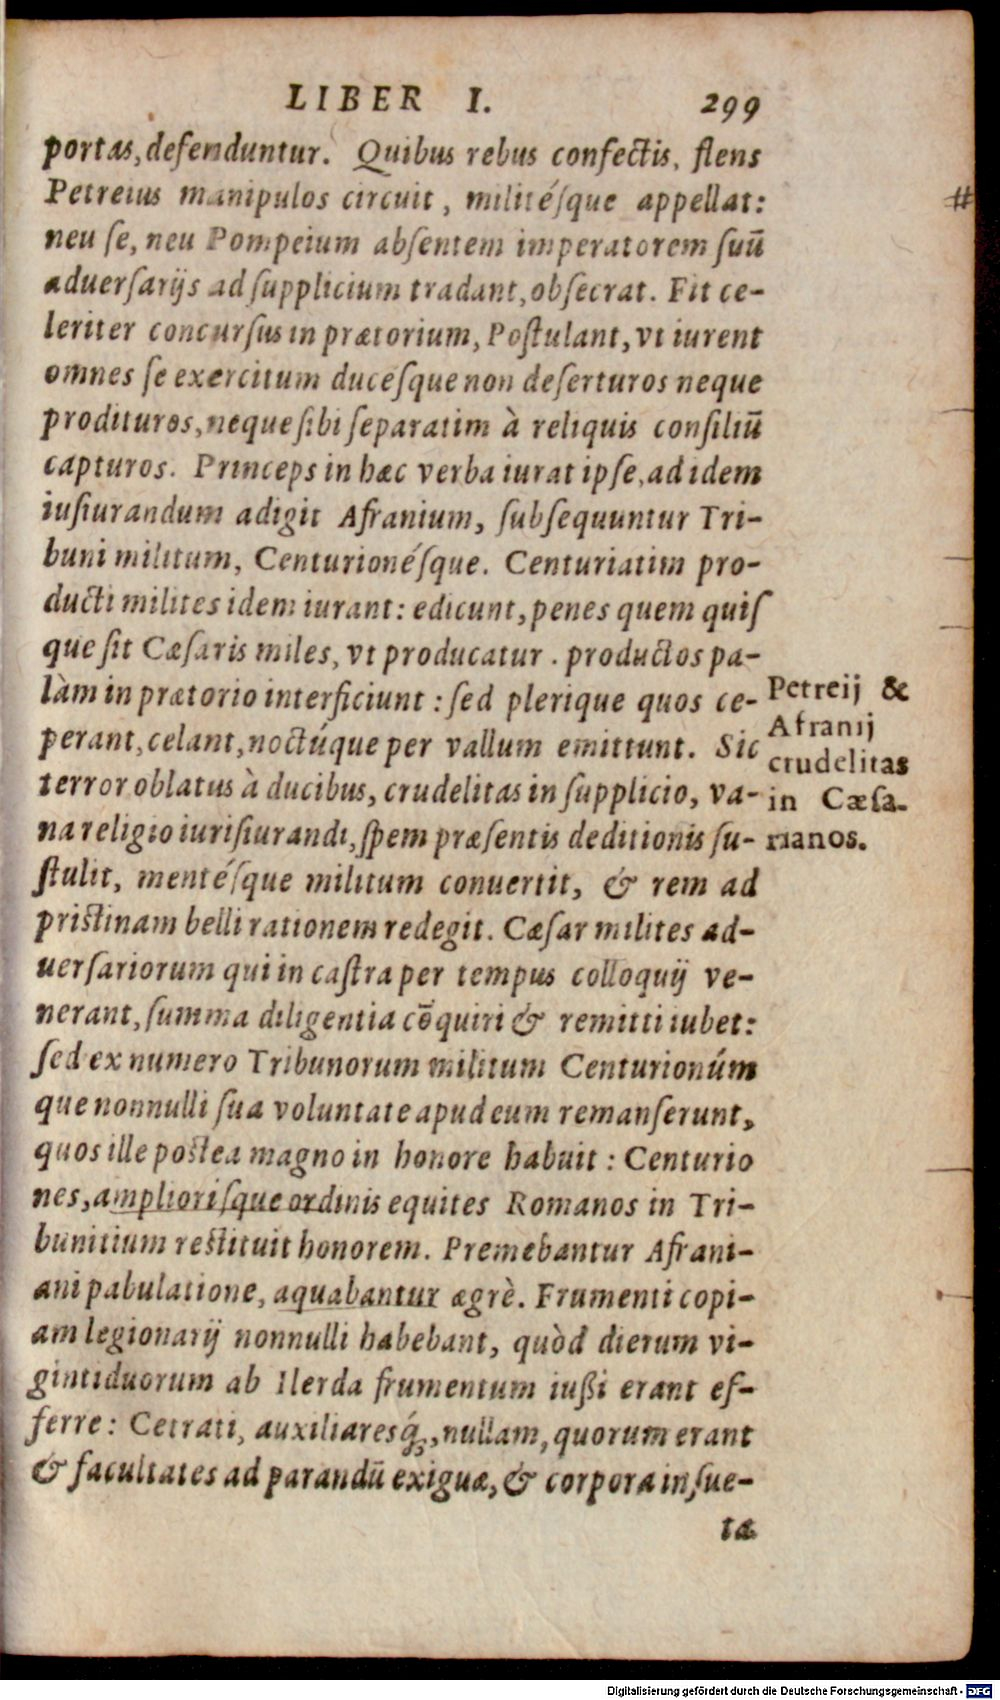 LIBER I. 299
portas, defenduntur. Quibus rebus confectis, flens
Petreius manipulos circuit, militésque appellat:
neu se, neu Pompeium absentem imperatorem suū
aduersarijs ad supplicium tradant, obsecrat. Fit ce-
leriter concursus in prætorium, Postulant, vt iurent
omnes se exercitum ducesque non deserturos neque
prodituros, neque sibi separatim à reliquis consiliū
capturos. Princeps in hæc verba iurat ipse, ad idem
iusiurandum adigit Afranium, subsequuntur Tri-
buni militum, Centurionésque. Centuriatim pro-
ducti milites idem iurant: edicunt, penes quem quis
que sit Cæsaris miles, vt producatur. productos pa-
làm in prætorio interficiunt: sed plerique quos ce-
perant, celant, noctúque per vallum emittunt. Sic
terror oblatus à ducibus, crudelitas in supplicio, va-
na religio iurisiurandi, spem præsentis deditionis su-
stulit, mentésque militum conuertit, & rem ad
pristinam belli rationem redegit. Cæsar milites ad-
uersariorum qui in castra per tempus colloquij ve-
nerant, summa diligentia cōquiri & remitti iubet:
sed ex numero Tribunorum militum Centurionúm
que nonnulli sua voluntate apud eum remanserunt,
quos ille postea magno in honore habuit: Centurio
nes, ampliorisque ordinis equites Romanos in Tri-
bunitium restituit honorem. Premebantur Afrani-
ani pabulatione, aquabantur ægrè. Frumenti copi-
am legionarij nonnulli habebant, quòd dierum vi-
gintiduorum ab Ilerda frumentum iußi erant ef-
ferre: Cetrati, auxiliaresq́;, nullam, quorum erant
& facultates ad parandū exiguæ, & corpora insue-
tæ
Petreij &
Afranij
crudelitas
in Cæsa-
rianos.
#
Digitalisierung gefördert durch die Deutsche Forschungsgemeinschaft - DFG